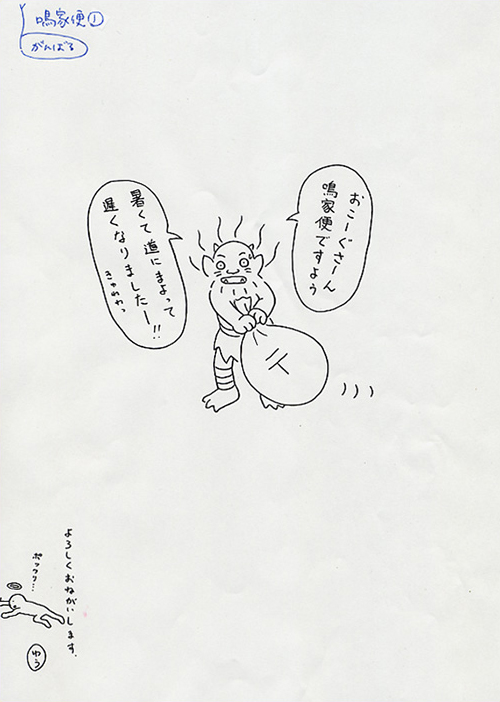 鳴家便①
がんばる
おこーぐさーん
鳴家便ですよう
暑くて道にまよって
遅くなりましたー!!
きゅわわっ
〒
よろしくおねがいします。
ポックリ…
ゆう